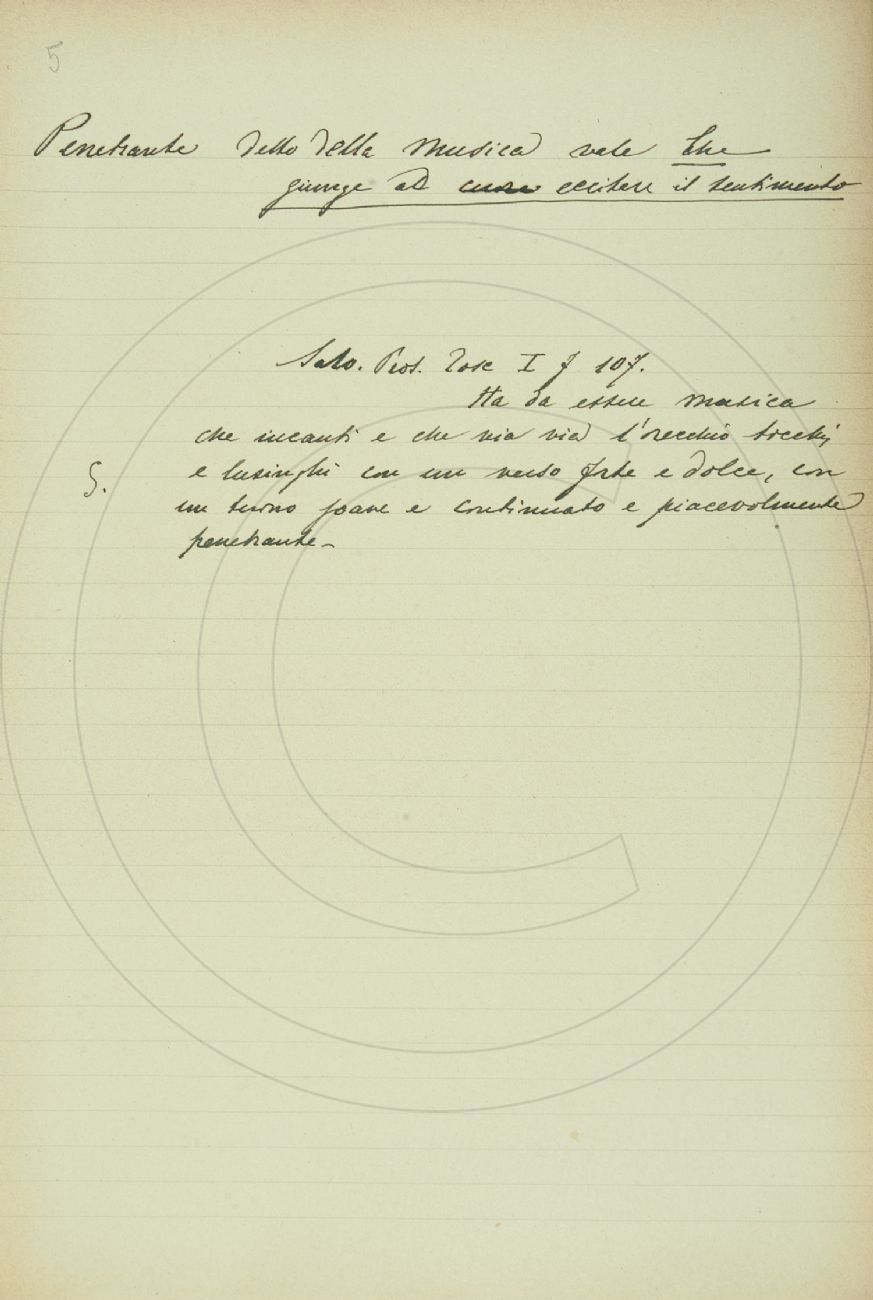 5
Penetrante detto della musica vale Che
giunge ad cuore eccitare il sentimento
Salv. Pros. Tosc I f 107.
Ha da essere musica
che incanti e che via via l'orecchio tocchi
e lusinghi con un verso forte e dolce, con
S.
un tuono soave e continuato e piacevolmente
penetrante_